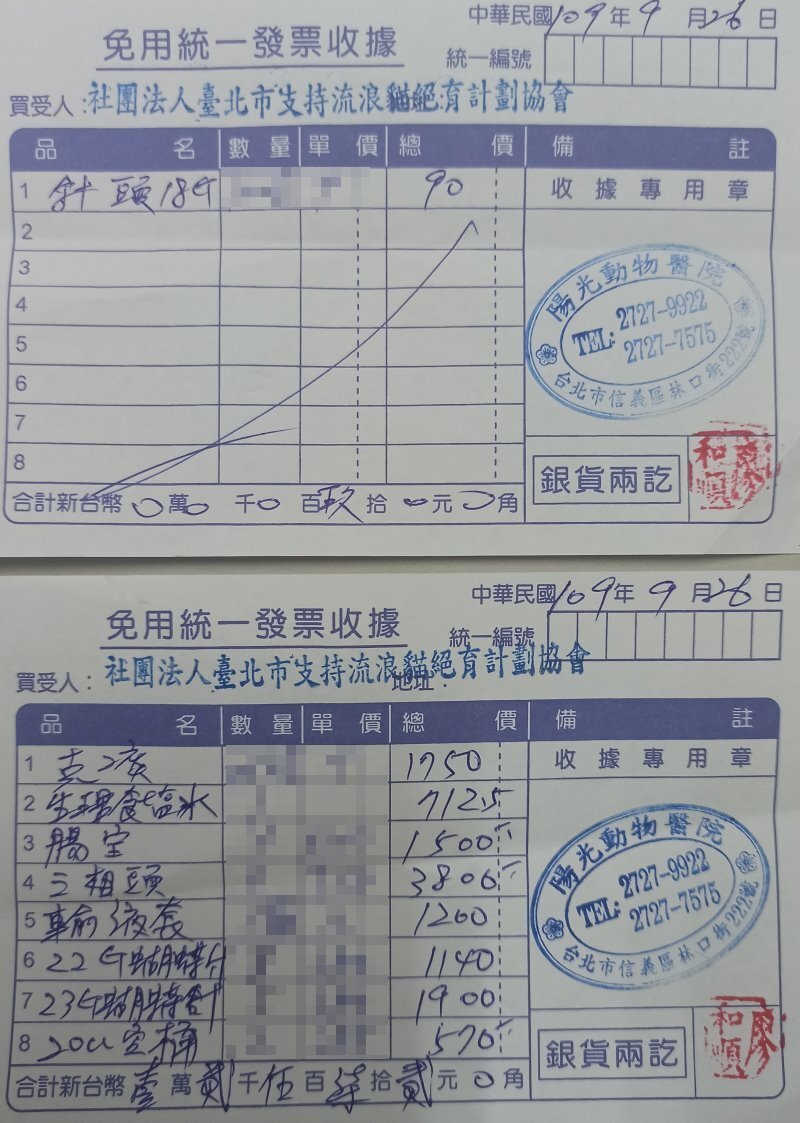 中華民國109年9月26日
免用統一發票收據
統一編號
買受人:社團法人臺北市支持流浪貓絕育計劃協會
品名 數量 單價 總價 備註
1 針頭18G 90
收據專用章
2
3
4
5
6
7
8
陽光動物醫院
TEL: 2727-9922
2727-7575
台北市信義區林口街222號
銀貨兩訖
廖和順
合計新台幣 0萬0千0百玖拾0元0角
中華民國109年9月26日
免用統一發票收據
統一編號
買受人:社團法人臺北市支持流浪貓絕育計劃協會
地址:
品名 數量 單價 總價 備註
1 1750
收據專用章
2 生理食塩水 712.5
3 腸宝 1500
4 三粗頭 3800
5 輸液套 1200
6 22G蝴蝶針 1140
7 23G蝴蝶針 1900
8 20cc空桶 570
陽光動物醫院
TEL: 2727-9922
2727-7575
台北市信義區林口街222號
銀貨兩訖
廖和順
合計新台幣壹萬貳千伍百柒拾貳元0角